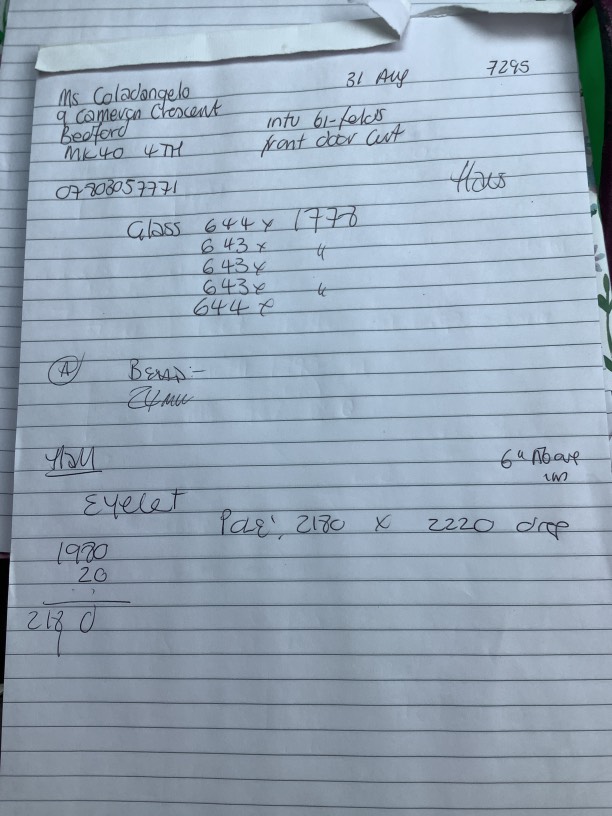 31 Aug 7295
Ms Coladangelo
9 Cameron Crescent
Bedford
MK40 4TH
intu bi-folds
front door cut
07803057771
Glass 644 x 1778
643 x "
643 x
643 x "
644 x
(A) BEAD:-
24mm
Hall
6" Above
Eyelet
Pole: 2180 x 2220 drop
1980
20
2180